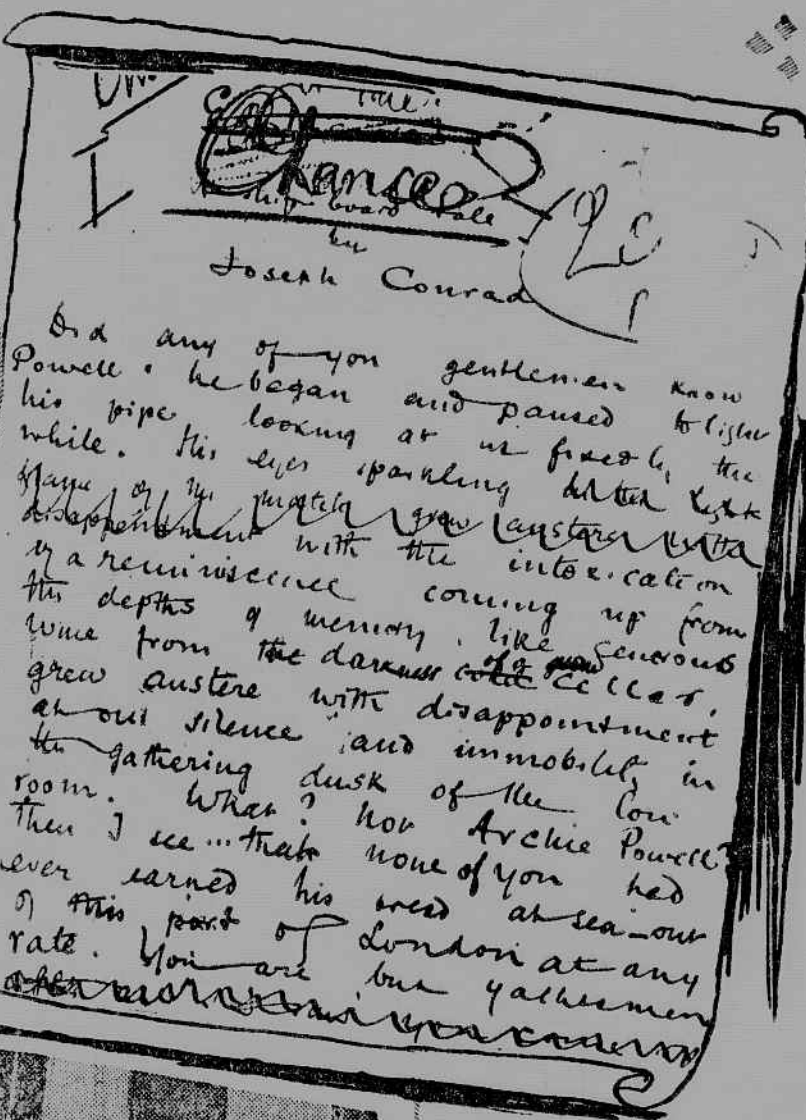 Chance
ship-board tale
by
Joseph Conrad
Did any of you gentlemen know
Powell. he began and paused to light
his pipe looking at us fixedly the
while. His eyes sparkling
flame of the match grew austere with
disappointment with the intoxication
of a reminiscence coming up from
the depths of memory. like generous
wine from the darkness of a cellar.
grew austere with disappointment
at our silence and immobility in
the gathering dusk of the low
room. What? Not Archie Powell?
Then I see... that none of you had
ever earned his bread at sea—out
of this part of London at any
rate. You are but yachtsmen